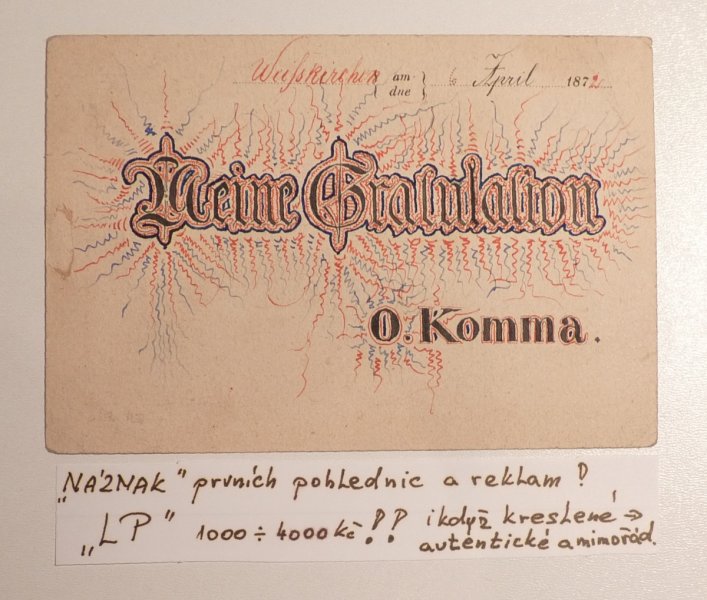 Weisskirchen { am dne } 6 April 1872
Meine Gratulation
O. Komma.
„NÁZNAK" prvních pohlednic a reklam?
„LP" 1000 ÷ 4000 Kč!? i když kreslené →
autentické a mimořád.